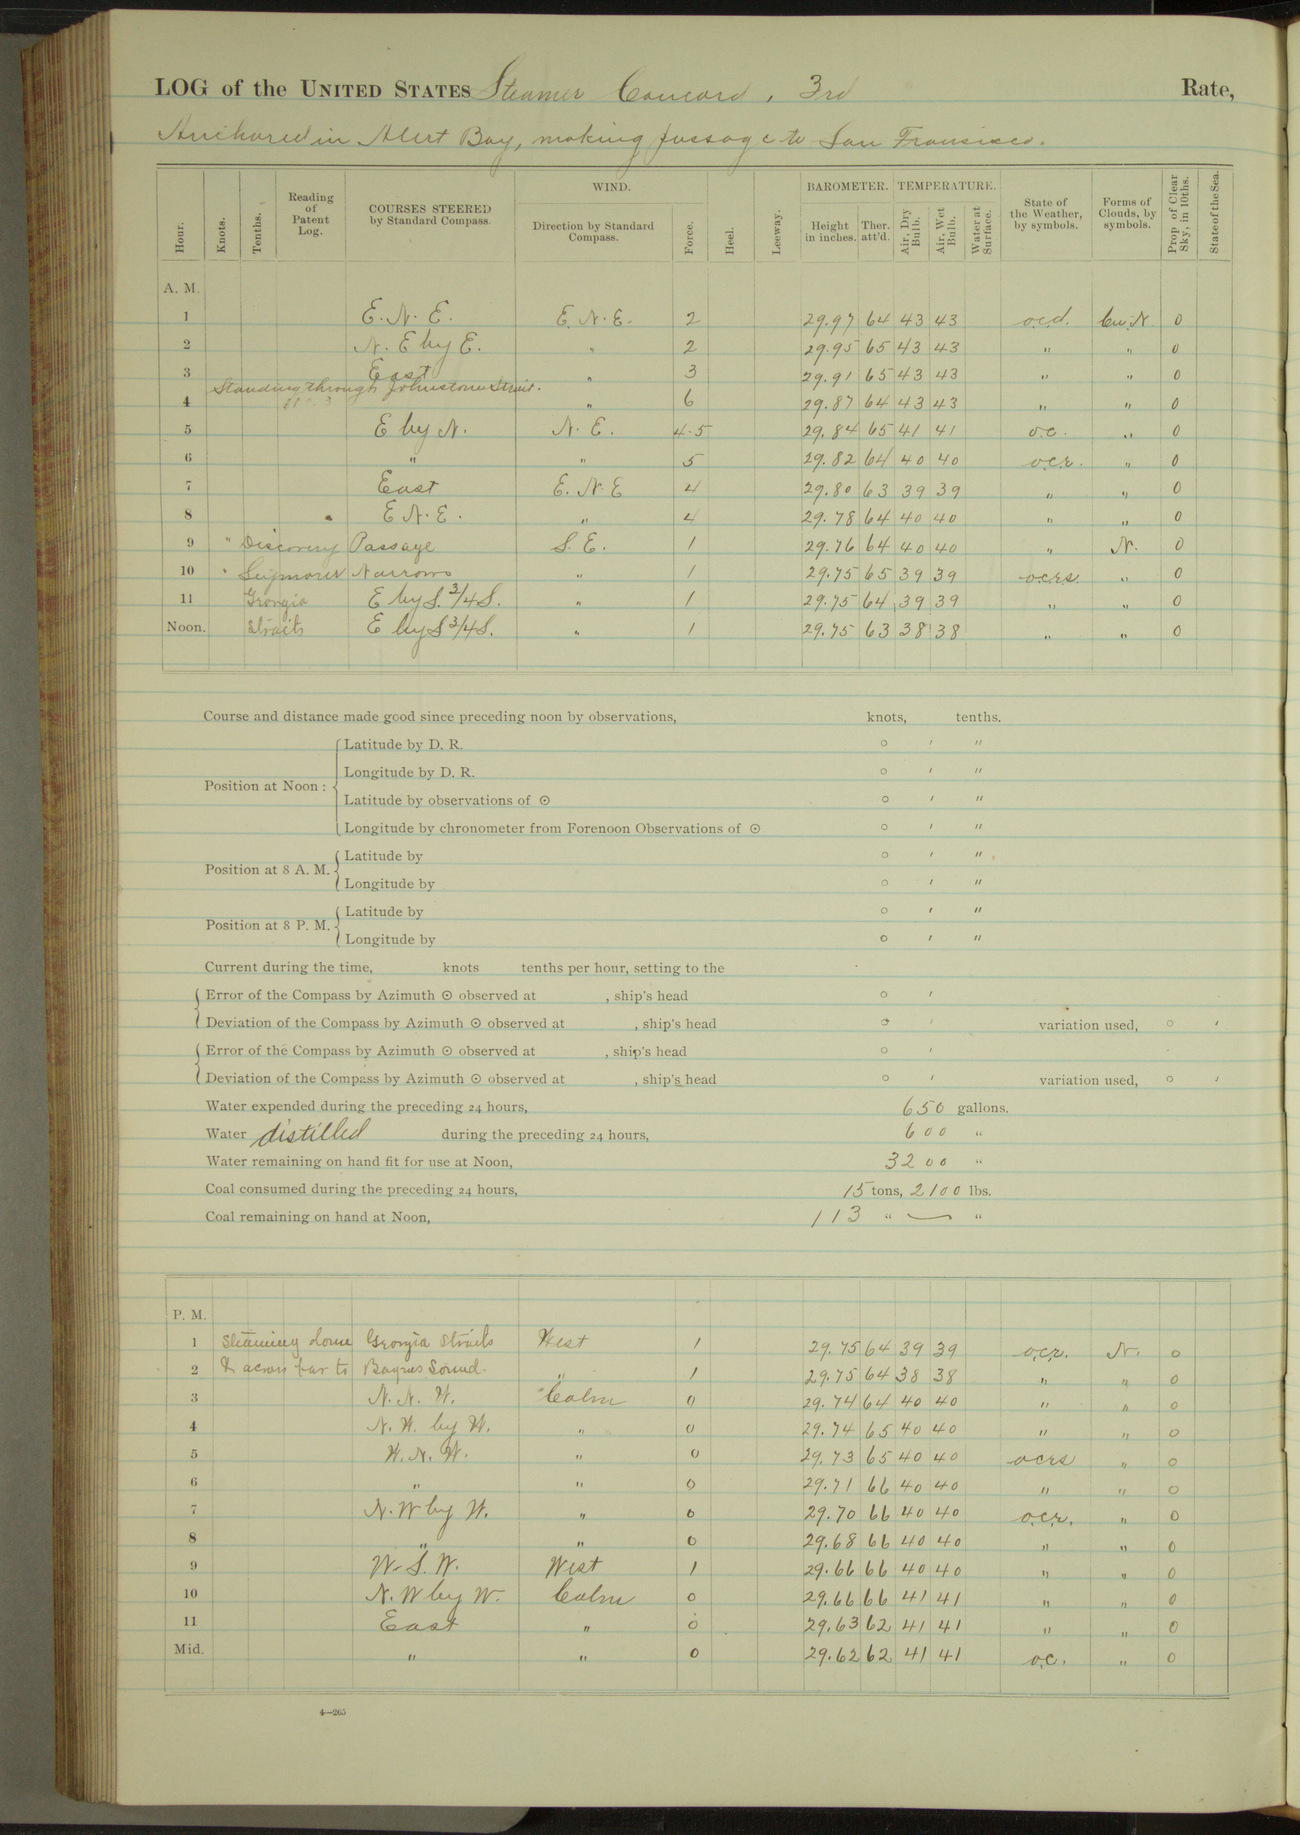 LOG of the UNITED STATES Steamer Concord, 3rd Rate,
Anchored in Alert Bay, making passage to San Fransisco.
Hour. Knots. Tenths. Reading of Patent Log. COURSES STEERED by Standard Compass. WIND. Direction by Standard Compass. Force. Heel. Leeway. BAROMETER. Height in inches. Ther. att'd. TEMPERATURE. Air, Dry Bulb. Air, Wet Bulb. Water at Surface. State of the Weather, by symbols. Forms of Clouds, by symbols. Prop of Clear Sky, in 10ths. State of the Sea.
A. M.
1 E. N. E. E. N. E. 2 29.97 64 43 43 o.c.d. Cu.N. 0
2 N. E by E. " 2 29.95 65 43 43 " " 0
3 East " 3 29.91 65 43 43 " " 0
Standing through Johnstone Strait.
4 " 6 29.87 64 43 43 " " 0
5 E by N. N. E. 4-5 29.84 65 41 41 o.c. " 0
6 " " 5 29.82 64 40 40 o.c.r. " 0
7 East E. N. E 4 29.80 63 39 39 " " 0
8 E N. E. " 4 29.78 64 40 40 " " 0
9 " Discovery Passage S. E. 1 29.76 64 40 40 " N. 0
10 " Seymour Narrows " 1 29.75 65 39 39 o.c.r.s " 0
11 Georgia E by S. 3/4 S. " 1 29.75 64 39 39 " " 0
Noon. Straits E by S 3/4 S. " 1 29.75 63 38 38 " " 0
Course and distance made good since preceding noon by observations, knots, tenths.
Position at Noon: Latitude by D. R. ° ′ ″
Longitude by D. R. ° ′ ″
Latitude by observations of ☉ ° ′ ″
Longitude by chronometer from Forenoon Observations of ☉ ° ′ ″
Position at 8 A. M. Latitude by ° ′ ″
Longitude by ° ′ ″
Position at 8 P. M. Latitude by ° ′ ″
Longitude by ° ′ ″
Current during the time, knots tenths per hour, setting to the
Error of the Compass by Azimuth ☉ observed at , ship's head ° ′
Deviation of the Compass by Azimuth ☉ observed at , ship's head ° ′ variation used, ° ′
Error of the Compass by Azimuth ☉ observed at , ship's head ° ′
Deviation of the Compass by Azimuth ☉ observed at , ship's head ° ′ variation used, ° ′
Water expended during the preceding 24 hours, 650 gallons.
Water distilled during the preceding 24 hours, 600 "
Water remaining on hand fit for use at Noon, 3200 "
Coal consumed during the preceding 24 hours, 15 tons, 2100 lbs.
Coal remaining on hand at Noon, 113 " — "
P. M.
1 Steaming down Georgia Straits West 1 29.75 64 39 39 o.c.r. N. 0
2 & across to Sound " 1 29.75 64 38 38 " " 0
3 N. N. W. Calm 0 29.74 64 40 40 " " 0
4 N. W. by W. " 0 29.74 65 40 40 " " 0
5 W. N. W. " 0 29.73 65 40 40 o.c.r.s " 0
6 " " 0 29.71 66 40 40 " " 0
7 N. W by W. " 0 29.70 66 40 40 o.c.r. " 0
8 " " 0 29.68 66 40 40 " " 0
9 W. S. W. West 1 29.66 66 40 40 " " 0
10 N. W by W. Calm 0 29.66 66 41 41 " " 0
11 East " 0 29.63 62 41 41 " " 0
Mid. " " 0 29.62 62 41 41 o.c. " 0
4—265